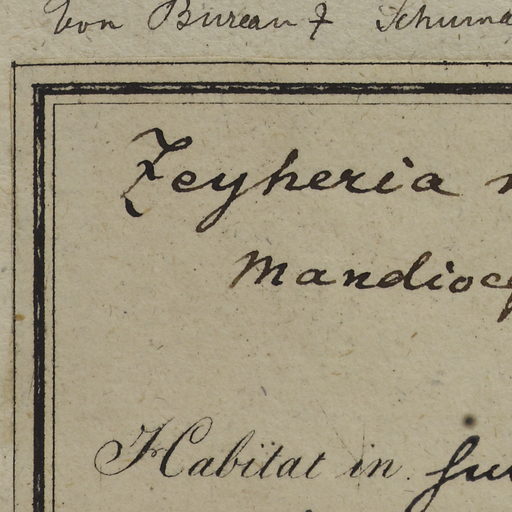 von Bureau & Schuma
Zeyheria
Mandiocc
Habitat in